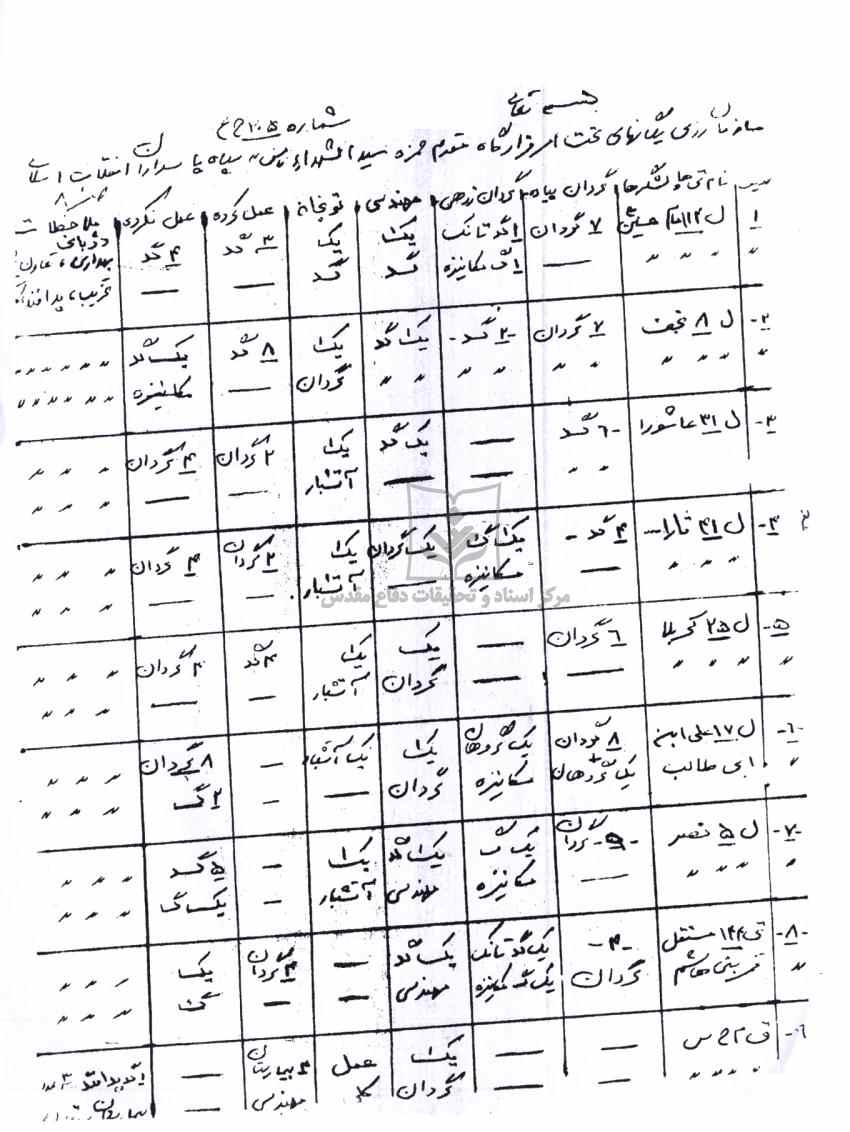 بسمه تعالی
شماره ۲۰۵ ح‌خ
سازمان رزمی یگانهای تحت امر قرارگاه مقدم حمزه سیدالشهداء سپاه پاسداران انقلاب اسلامی
نام تیپها و لشگرها گردان پیاده گردان زرهی مهندسی توپخانه عمل کرده عمل نکرده ملاحظات
۱ ل ۱۴ امام حسین ۷ گردان ۱ گد تانک یک یک ۳ گد ۴ گد دژبانی
" " " " — ۱ گ مکانیزه گد گد — — بهداری، تعاون
تخریب، پدافند
۲- ل ۸ نجف ۷ گردان -۲ گد- یک گد یک ۸ گد یک گد " " " " " "
" " " " " " " " " " گردان — مکانیزه " " " " " "
۳- ل ۳۱ عاشورا -۶ گد — یک گد یک ۲ گردان ۴ گردان " " "
" " — — آتشبار — — " " "
۴- ل ۴۱ ثارا... ۴ گد- یک گ یک گردان یک ۲ گردان ۴ گردان " " "
" " " — مکانیزه — آتشبار — — " " "
مرکز اسناد و تحقیقات دفاع مقدس
۵- ل ۲۵ کربلا ۶ گردان — یک یک ۴ گد ۲ گردان " " "
" " " " " — — گردان آتشبار — — " " "
-۶- ل ۱۷ علی ابن ۸ گردان یک گروهان یک یک آتشبار — ۸ گردان " " "
" ابی طالب + یک گروهان مکانیزه گردان — — ۲ گ " " "
-۷- ل ۵ نصر -۵- گردان یک گ یک گد یک — ۵ گد " " "
" " " " — مکانیزه مهندسی آتشبار — یک گ " " "
-۸- تی ۱۴۴ مستقل -۴- یک گد تانک یک گد — ۴ گردان یک " " "
" قمر بنی هاشم گردان یک گ مکانیزه مهندسی — — گ " " "
ق ۲ ح س — — یک عمل ۲ بیمارستان —
" " " " — — گردان کلا مهندسی —